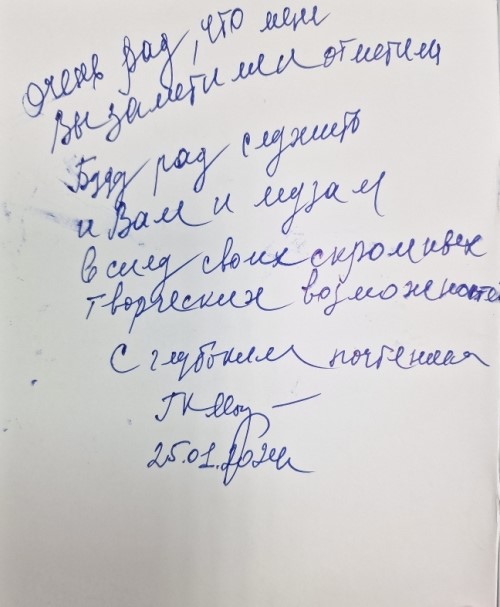 Очень рад, что меня
Вы заметили и отметили
Буду рад служить
и Вам и музам
В силу своих скромных
творческих возможностей
С глубоким почтением
25.01.2024